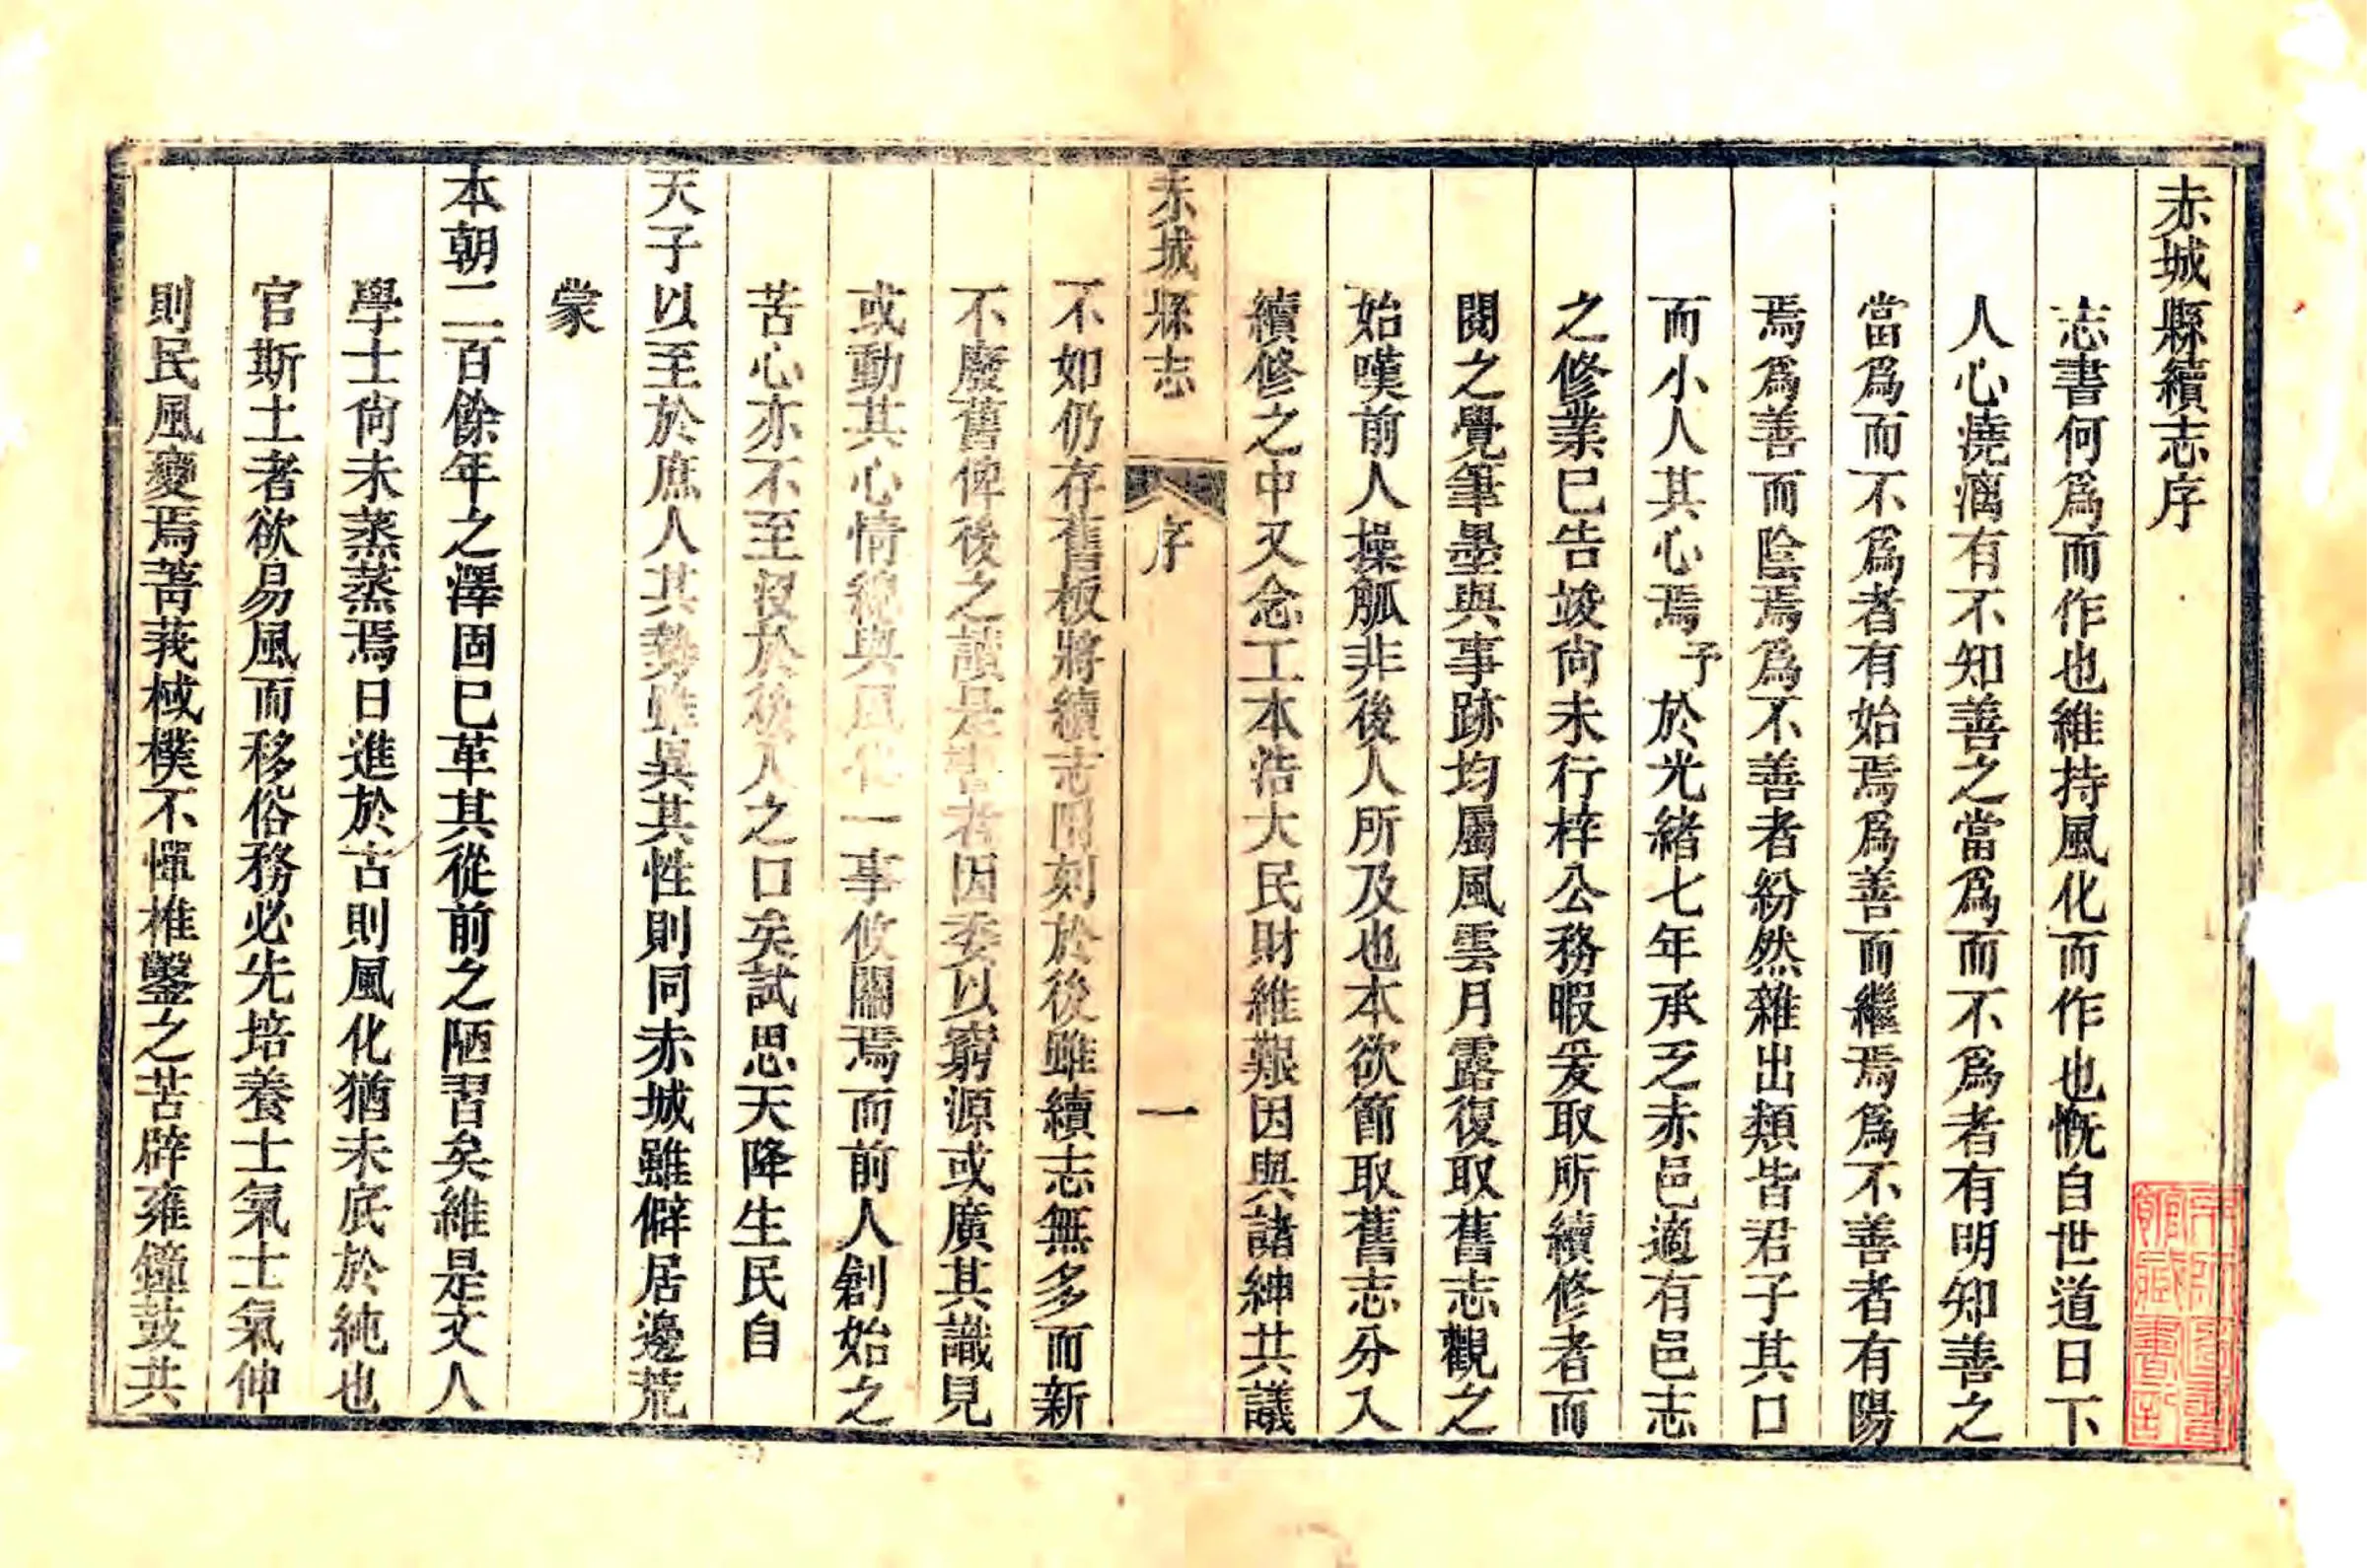 赤城縣續志序
志書何爲而作也維持風化而作也慨自世道日下
人心澆漓有不知善之當爲而不爲者有明知善之
當爲而不爲者有始焉爲善而繼焉爲不善者有陽
焉爲善而陰焉爲不善者紛然雜出類皆君子其口
而小人其心焉予於光緒七年承乏赤邑適有邑志
之修業已告竣尙未行梓公務暇爰取所續修者而
閱之覺筆墨與事跡均屬風雲月露復取舊志觀之
始嘆前人操觚非後人所及也本欲節取舊志分入
續修之中又念工本浩大民財維艱因與諸紳共議
赤城縣志
序
一
不如仍存舊板將續志開刻於後雖續志無多而新
不廢舊俾後之讀是書者因委以窮源或廣其識見
或動其心情總與風化一事攸關焉而前人創始之
苦心亦不至沒於後人之口矣試思天降生民自
天子以至於庶人其勢雖異其性則同赤城雖僻居邊荒
蒙
本朝二百餘年之澤固已革其從前之陋習矣維是文人
學士尙未蒸蒸焉日進於古則風化猶未底於純也
官斯土者欲易風而移俗務必先培養士氣士氣伸
則民風變焉菁莪棫樸不憚椎鑿之苦辟雍鐘鼓共